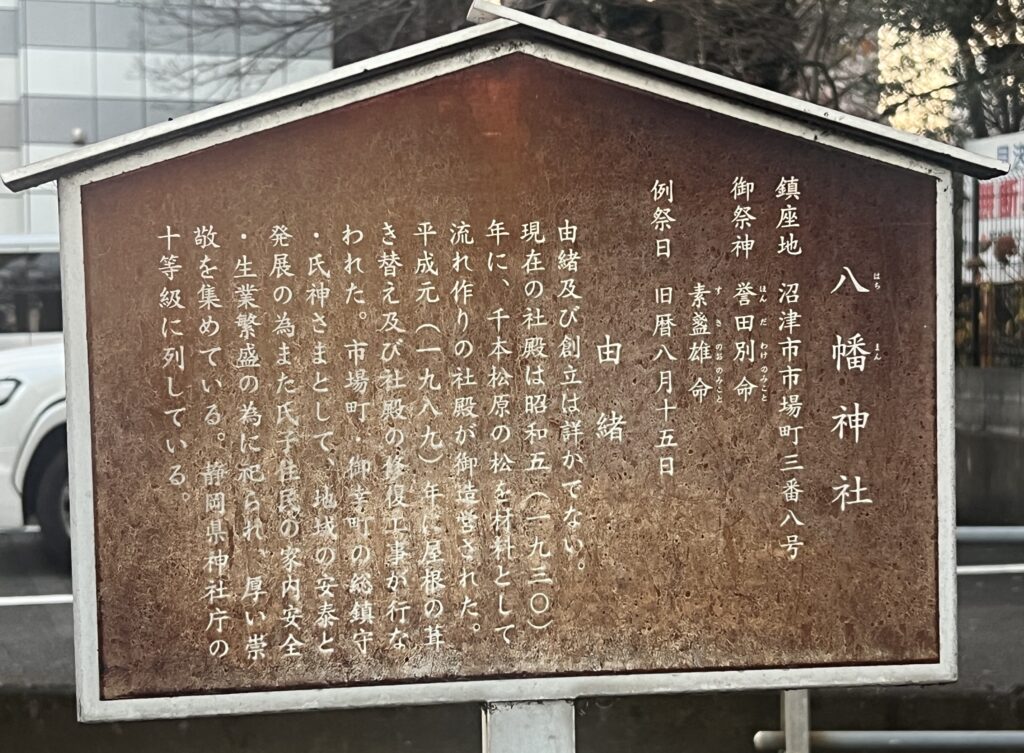 八幡神社
はちまん
鎮座地 沼津市市場町三番八号
御祭神 誉田別命
ほんだわけのみこと
素盞雄命
すさのおのみこと
例祭日 旧暦八月十五日
由緒
由緒及び創立は詳かでない。
現在の社殿は昭和五（一九三〇）
年に、千本松原の松を材料として
流れ作りの社殿が御造営された。
平成元（一九八九）年に屋根の葺
き替え及び社殿の修復工事が行な
われた。市場町・御幸町の総鎮守
・氏神さまとして、地域の安泰と
発展の為また氏子住民の家内安全
・生業繁盛の為に祀られ、厚い崇
敬を集めている。静岡県神社庁の
十等級に列している。